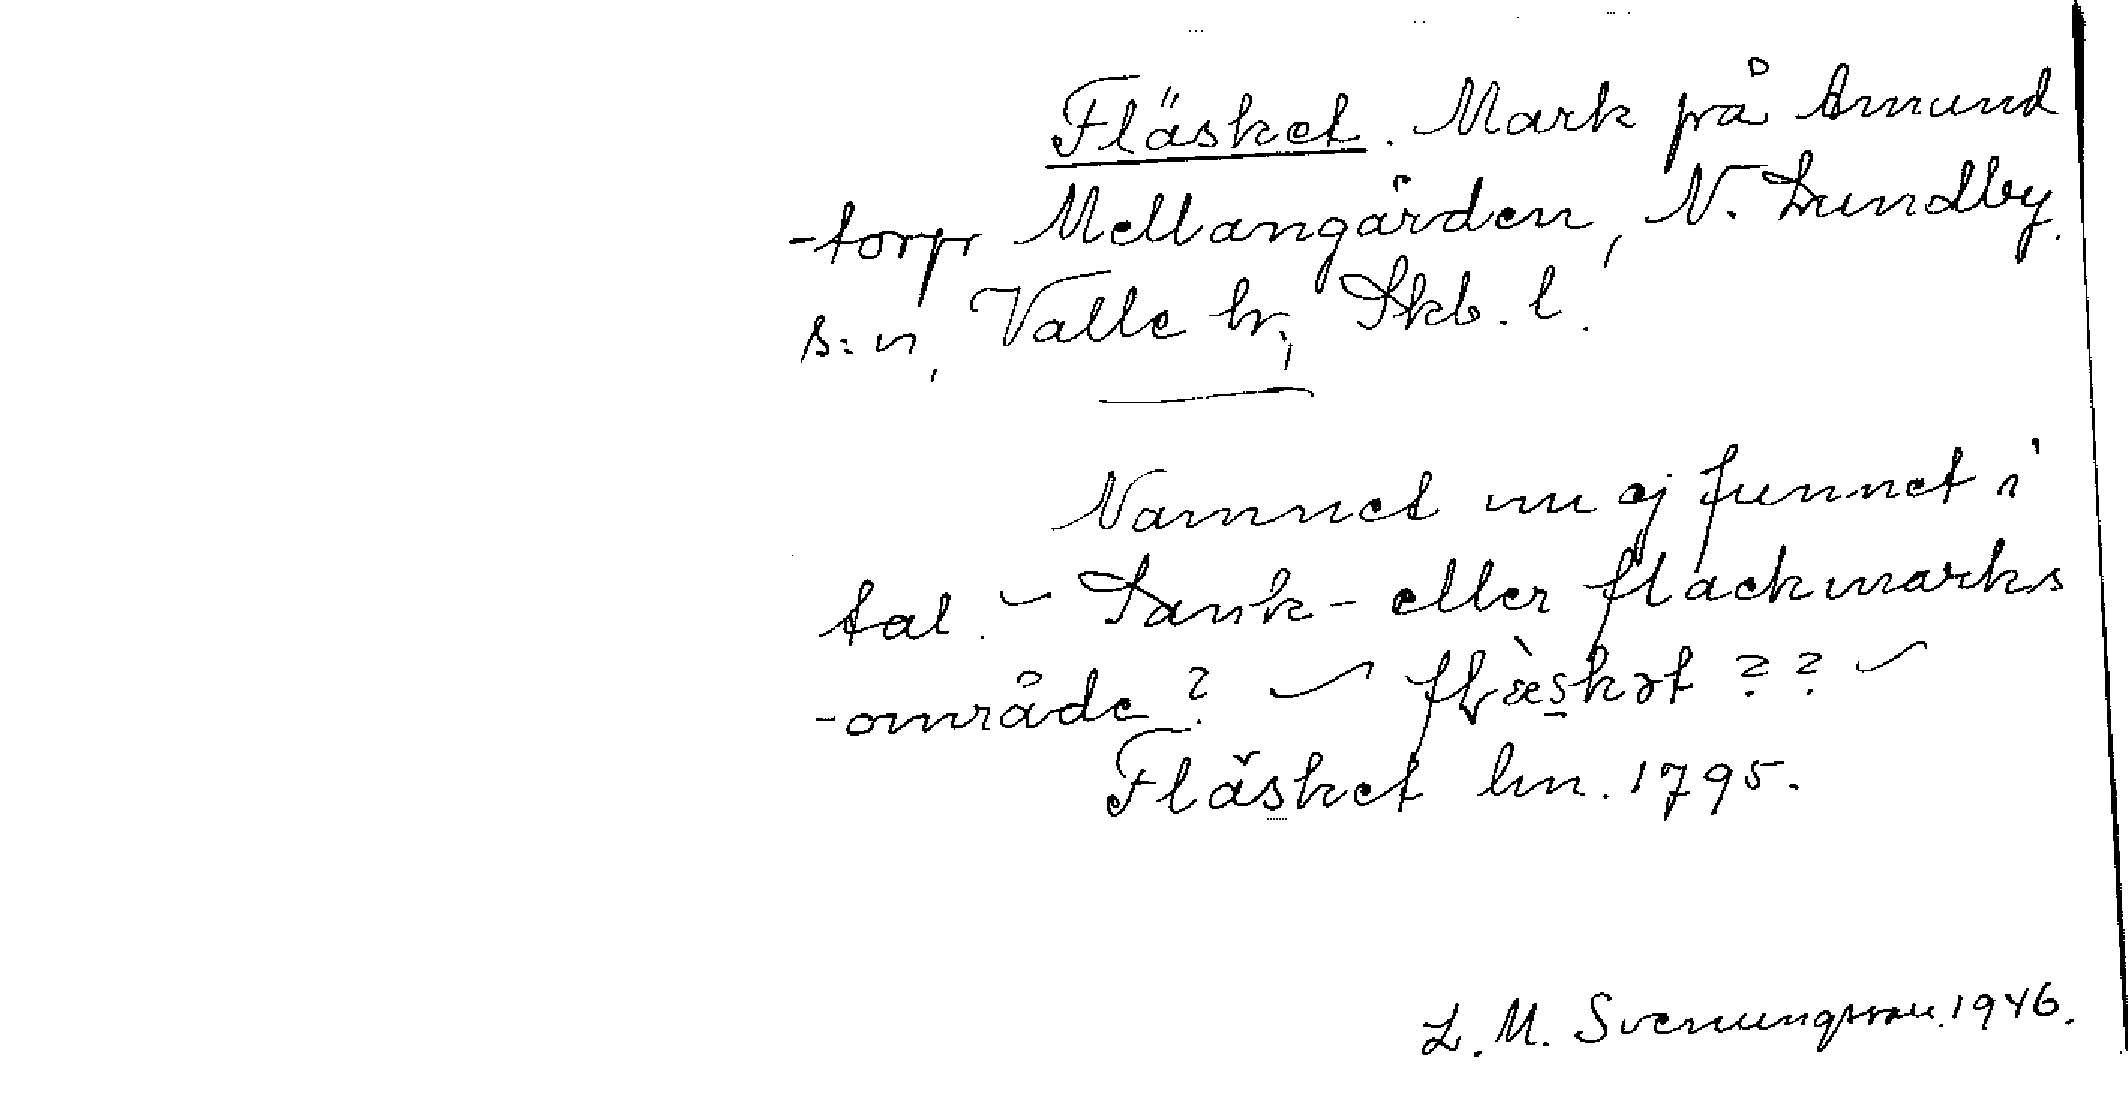 Fläsket. Mark på Amund
-torp Mellangården, N. Lundby
s:n, Valle hr, Skb. l.
Namnet nu ej funnet i
tal. - Sank- eller flackmarks
-område? - flæ̀skət ?? -
Fläsket lm. 1795.
L. M. Svenungsson. 1946.